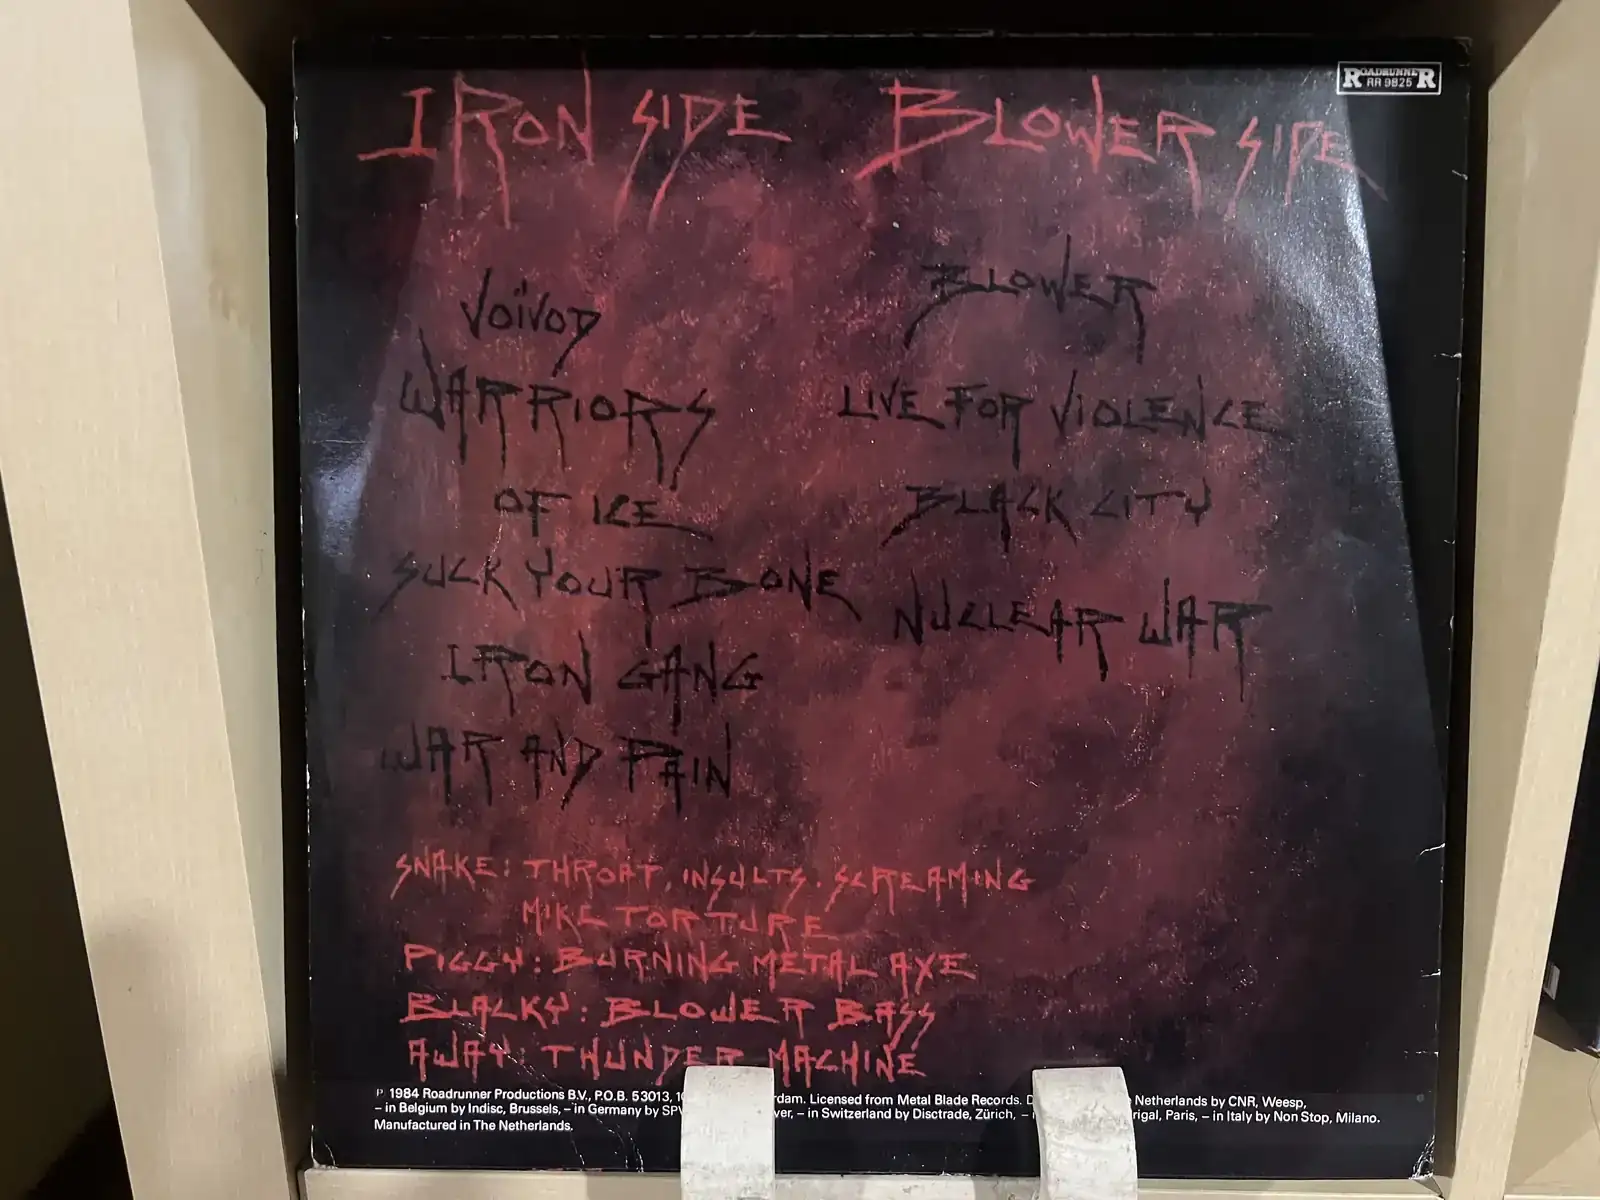 IRON SIDE
BLOWER SIDE
ROADRUNNER
RR 9825
VOÏVOD
WARRIORS
OF ICE
SUCK YOUR BONE
IRON GANG
WAR AND PAIN
BLOWER
LIVE FOR VIOLENCE
BLACK CITY
NUCLEAR WAR
SNAKE: THROAT, INSULTS, SCREAMING
MIKE TORTURE
PIGGY: BURNING METAL AXE
BLACKY: BLOWER BASS
AWAY: THUNDER MACHINE
P 1984 Roadrunner Productions B.V., P.O.B. 53013, Licensed from Metal Blade Records. Netherlands by CNR, Weesp,
– in Belgium by Indisc, Brussels, – in Germany by – in Switzerland by Disctrade, Zürich, – Paris, – in Italy by Non Stop, Milano.
Manufactured in The Netherlands.